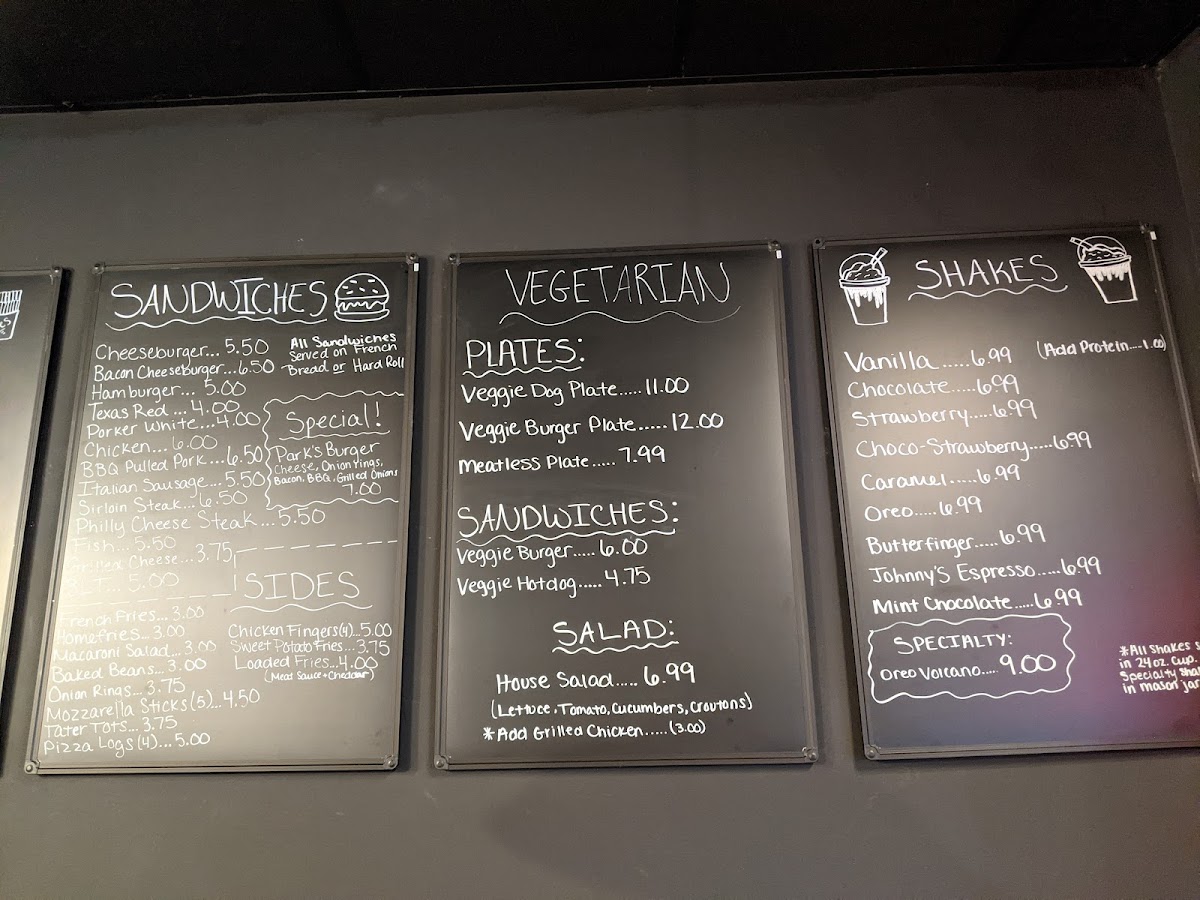 SANDWICHES
All Sandwiches
Served on French
Bread or Hard Roll
Cheeseburger... 5.50
Bacon Cheeseburger...6.50
Hamburger... 5.00
Texas Red ... 4.00
Porker White... 4.00
Chicken... 6.00
BBQ Pulled Pork...6.50
Italian Sausage... 5.50
Sirloin Steak...6.50
Philly Cheese Steak ... 5.50
Fish... 5.50
Cheese... 3.75
5.00
Special!
Park's Burger
Cheese, Onion rings,
Bacon, BBQ, Grilled Onions
7.00
SIDES
French Fries... 3.00
Homefries... 3.00
Macaroni Salad... 3.00
Baked Beans... 3.00
Onion Rings... 3.75
Mozzarella Sticks (5)...4.50
Tater Tots... 3.75
Pizza Logs (4)...5.00
Chicken Fingers(4)...5.00
Sweet Potato Fries...3.75
Loaded Fries...4.00
(Meat Sauce + Cheddar)
VEGETARIAN
PLATES:
Veggie Dog Plate..... 11.00
Veggie Burger Plate..... 12.00
Meatless Plate..... 7.99
SANDWICHES:
Veggie Burger..... 6.00
Veggie Hotdog..... 4.75
SALAD:
House Salad..... 6.99
(Lettuce, Tomato, Cucumbers, Croutons)
* Add Grilled Chicken..... (3.00)
SHAKES
Vanilla .....6.99 (Add Protein....1.00)
Chocolate.....6.99
Strawberry.....6.99
Choco-Strawberry.....6.99
Caramel.....6.99
Oreo.....6.99
Butterfinger.....6.99
Johnny's Espresso.....6.99
Mint Chocolate.....6.99
SPECIALTY:
Oreo Volcano.... 9.00
*All Shakes
in 24 oz. Cup.
Specialty
in mason